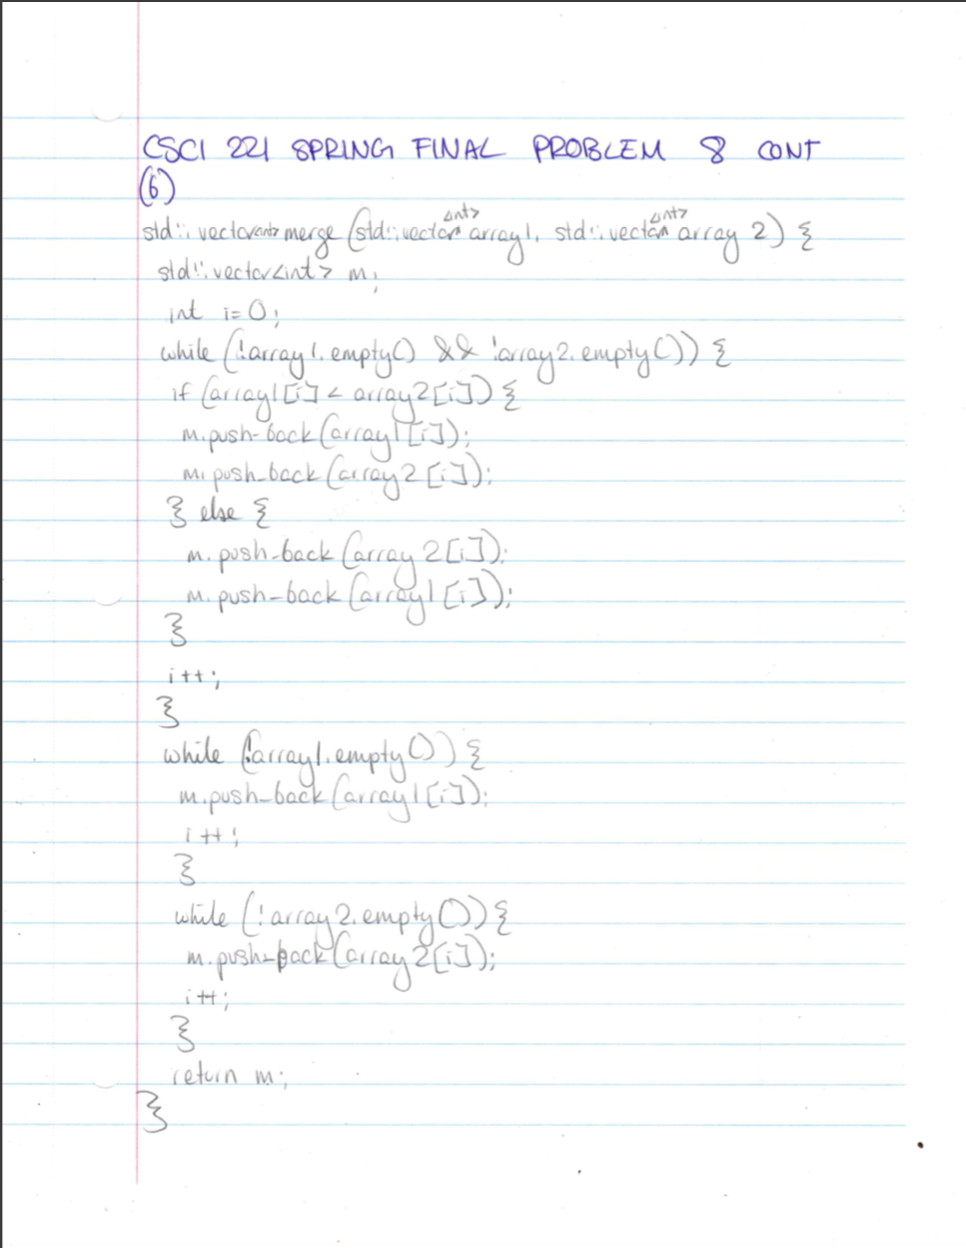 CSCI 221 SPRING FINAL PROBLEM 8 CONT
(6)
std::vector<int> merge (std::vector<int> array1, std::vector<int> array 2) {
std::vector<int> m;
int i=0;
while (!array1.empty() && !array2.empty()) {
if (array1[i] < array2[i]) {
m.push-back(array1[i]);
m.push_back(array2[i]);
} else {
m.push-back(array2[i]);
m.push-back(array1[i]);
}
i++;
}
while (!array1.empty()) {
m.push-back(array1[i]);
i++;
}
while (!array2.empty()) {
m.push-back(array2[i]);
i++;
}
return m;
}